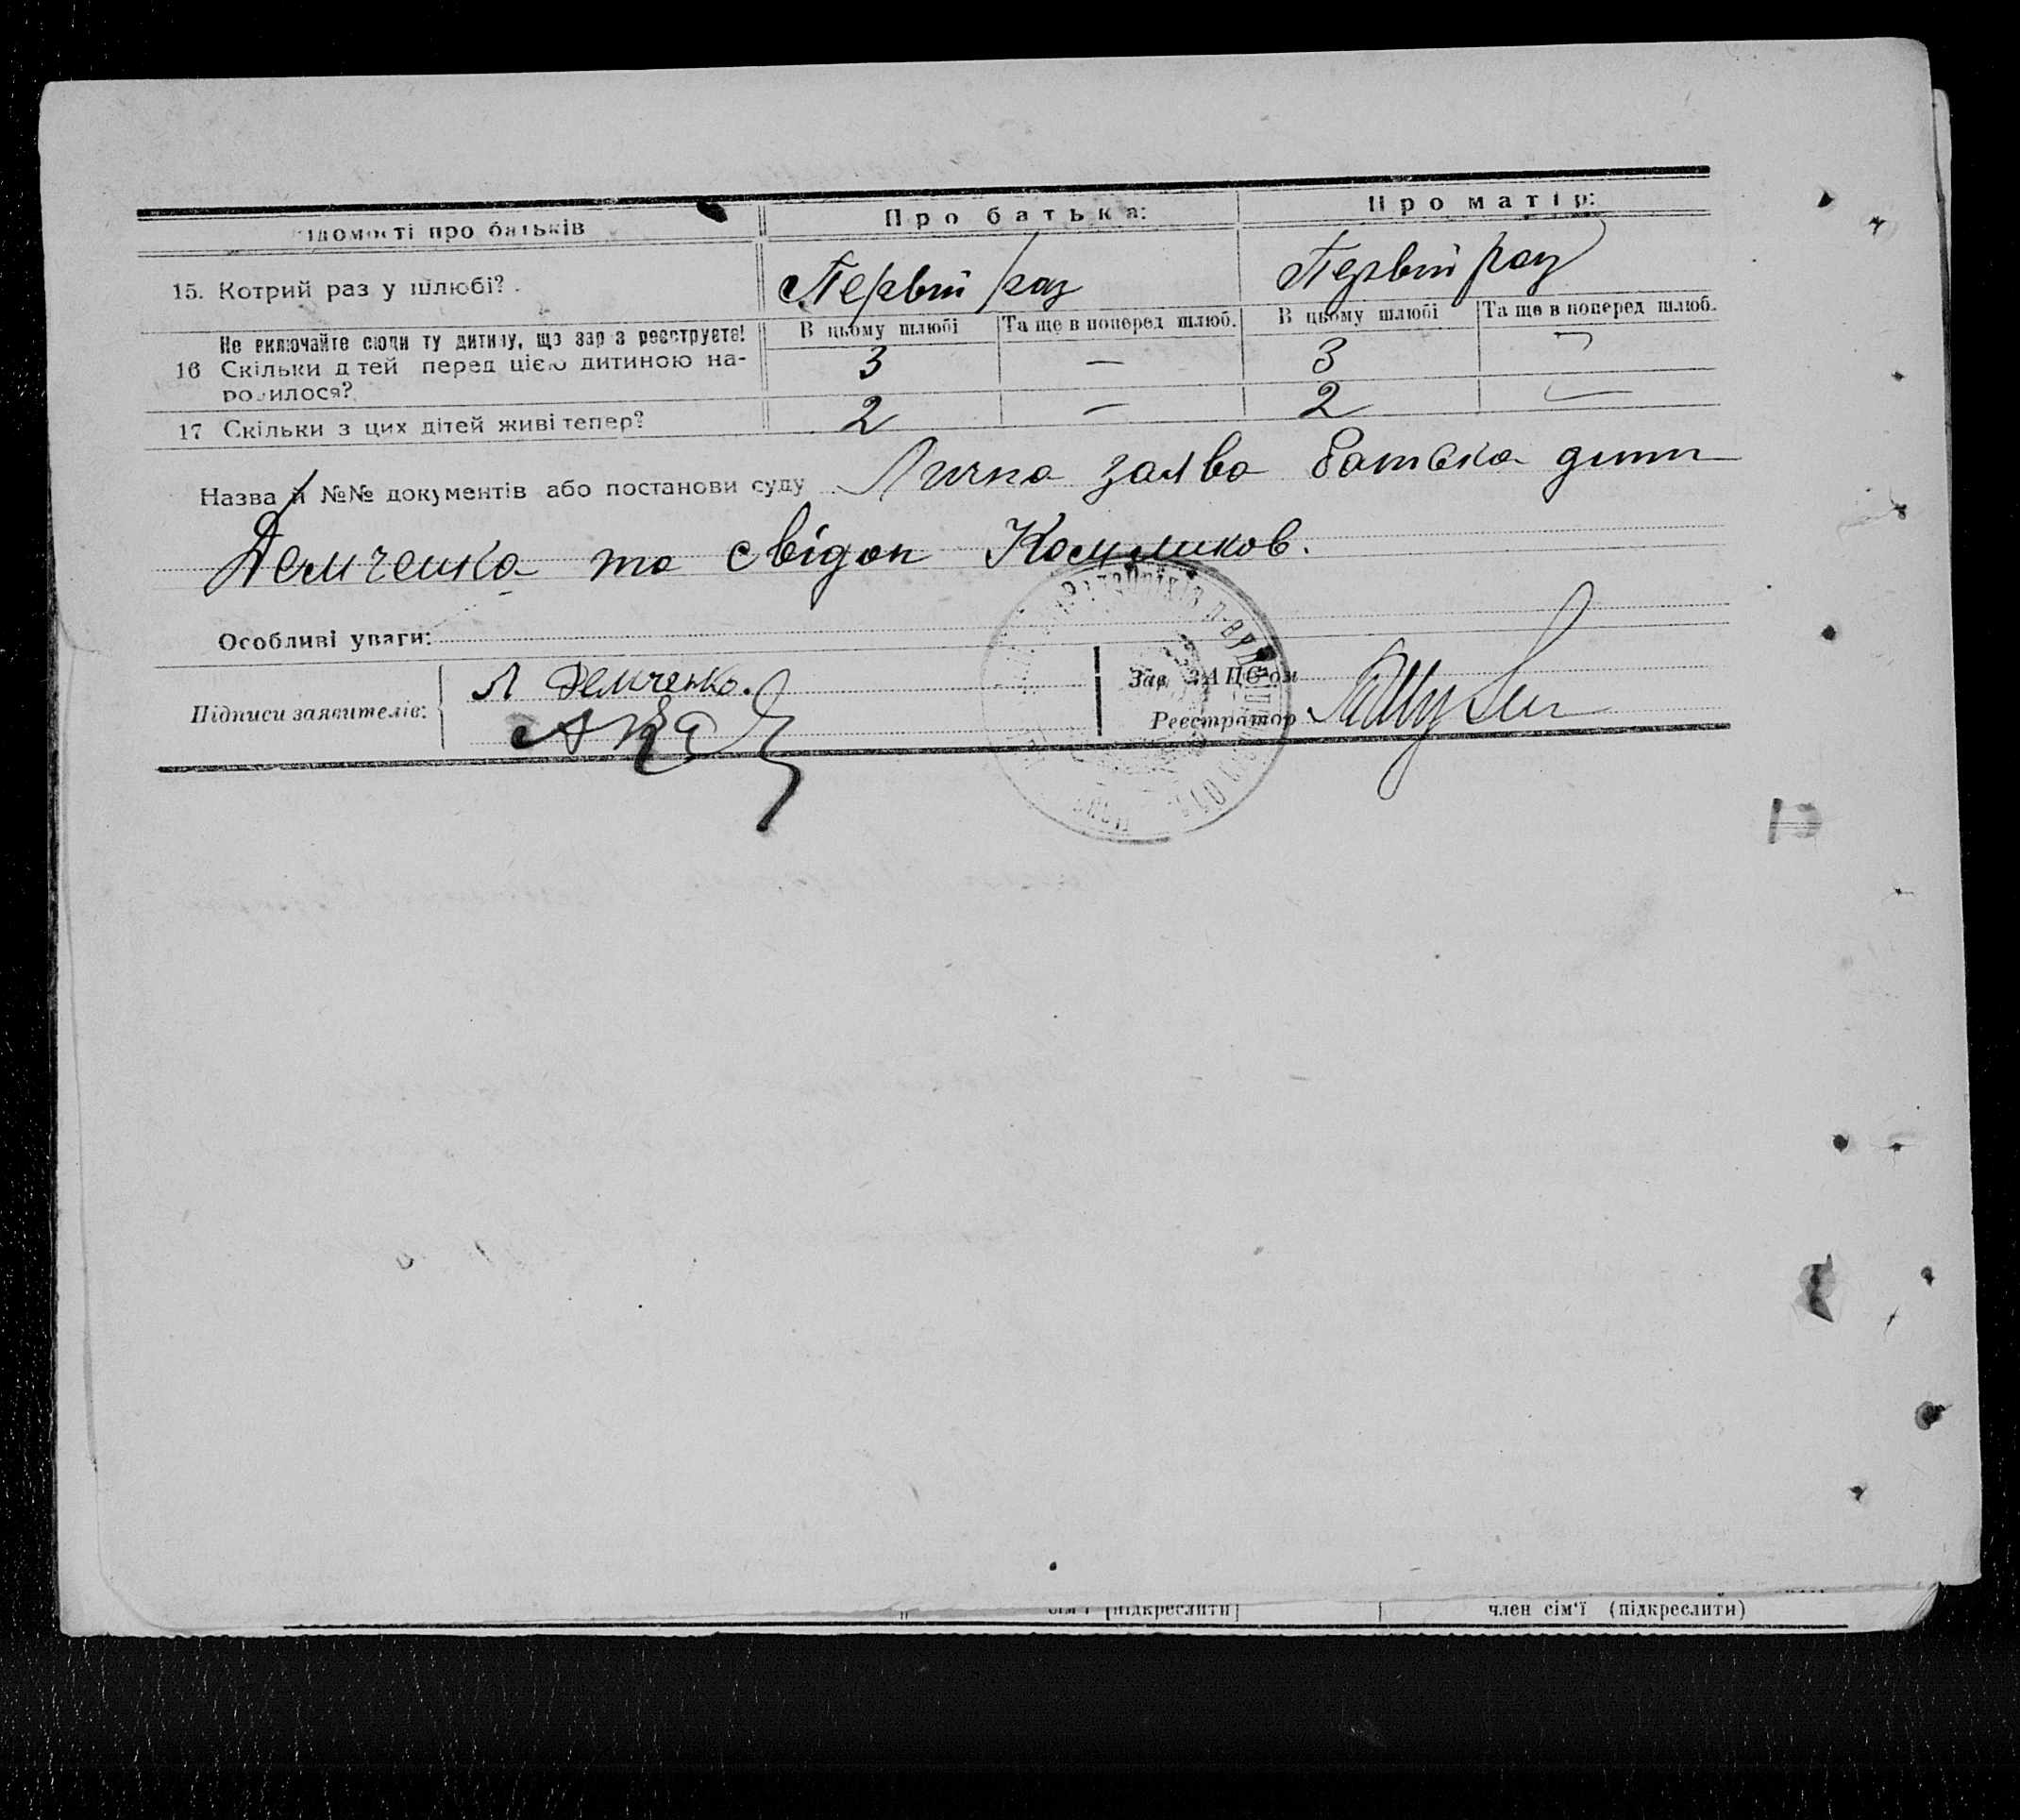 ідомості про батьків Про батька: Про матір:
15. Котрий раз у шлюбі? . Первий раз Первий раз
Не включайте сюди ту дитину, що зар з реєструєте! В цьому шлюбі Та ще в поперед шлюб. В цьому шлюбі Та ще в поперед шлюб.
16 Скільки д тей перед цією дитиною на-
родилося? 3 — 3 —
17 Скільки з цих дітей живі тепер? 2 — 2 —
Назва й №№ документів або постанови суду Лична заява батька дити
Демченка та свідок
Особливі уваги:
Підписи заявителів: Л Демченко.
Зав ЗАПС'ом
Реєстратор
сім'ї [підкреслити] член сім'ї (підкреслити)